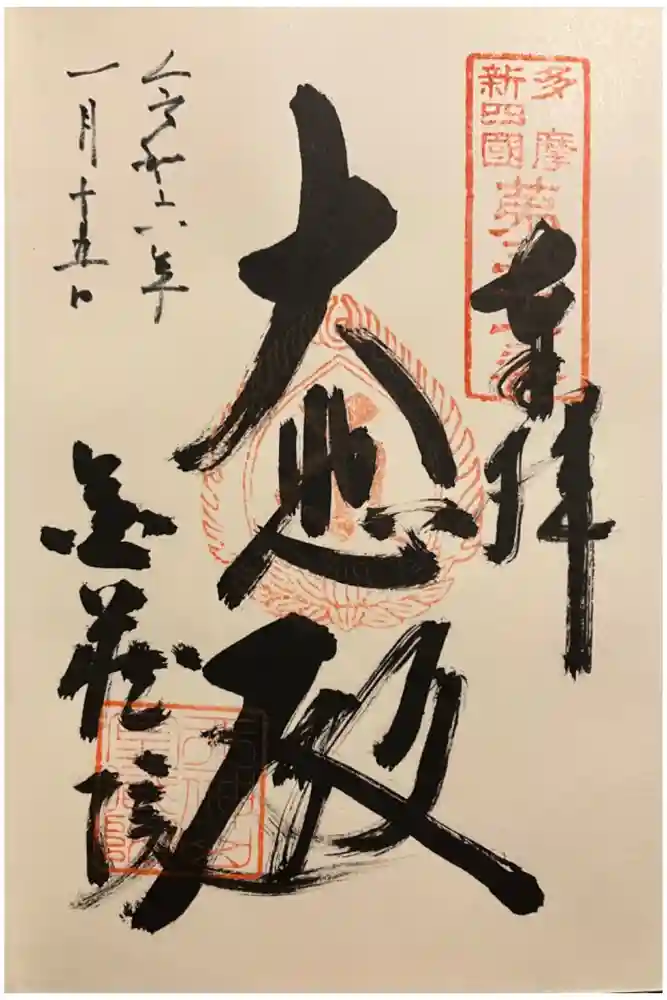 多摩
新四國
第
奉拝
大悲殿
令和六年
一月十五日
金蔵院